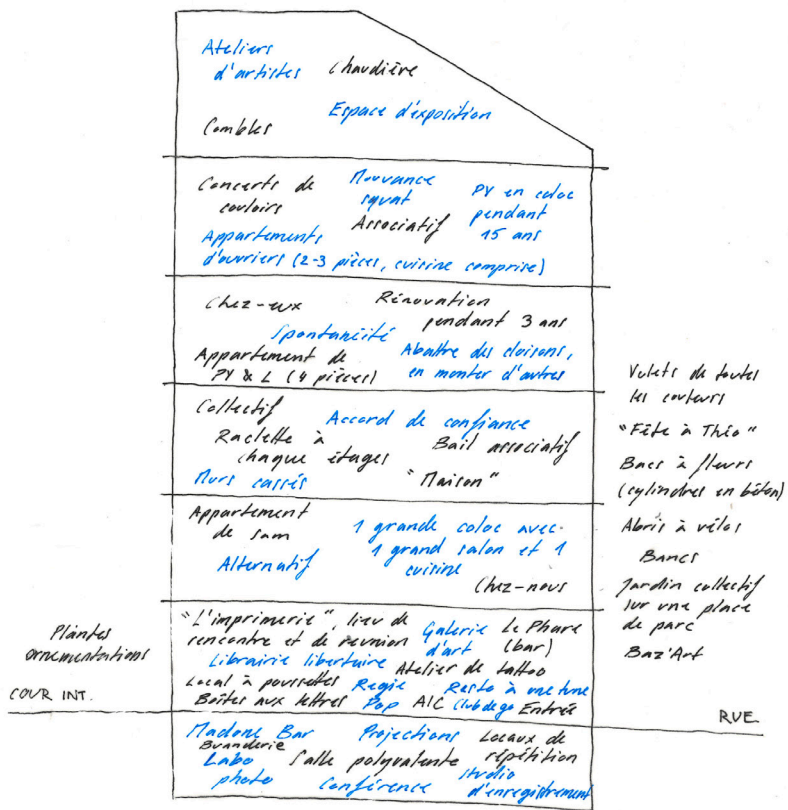 Ateliers
d'artistes Chaudière
Espace d'exposition
Combles
Concerts de
couloirs
Mouvance
squat
PY en coloc
pendant
15 ans
Associatif
Appartements
d'ouvriers (2-3 pièces, cuisine comprise)
Chez-eux
Rénovation
pendant 3 ans
Spontanéité
Appartement de
PY & L (4 pièces)
Abattre des cloisons,
en monter d'autres
Collectif
Accord de confiance
Raclette à
chaque étages
Bail associatif
Murs cassés
"Maison"
Appartement
de Sam
1 grande coloc avec
1 grand salon et 1
cuisine
Alternatif
Chez-nous
"L'imprimerie", lieu de
rencontre et de reunion
Galerie
d'art
Le Phare
(bar)
Librairie libertaire
Atelier de tattoo
Local à poussettes
Regie
Pop
Resto à une tune
Boîtes aux lettres
AIC
Club de go
Entrée
Madone Bar
Buanderie
Projections
Locaux de
répétition
Labo
photo
Salle polyvalente
Conférence
Studio
d'enregistrement
Plantes
ornementations
COUR INT.
Volets de toutes
les couleurs
"Fête à Théo"
Bacs à fleurs
(cylindres en béton)
Abris à vélos
Bancs
Jardin collectif
sur une place
de parc
Baz'Art
RUE